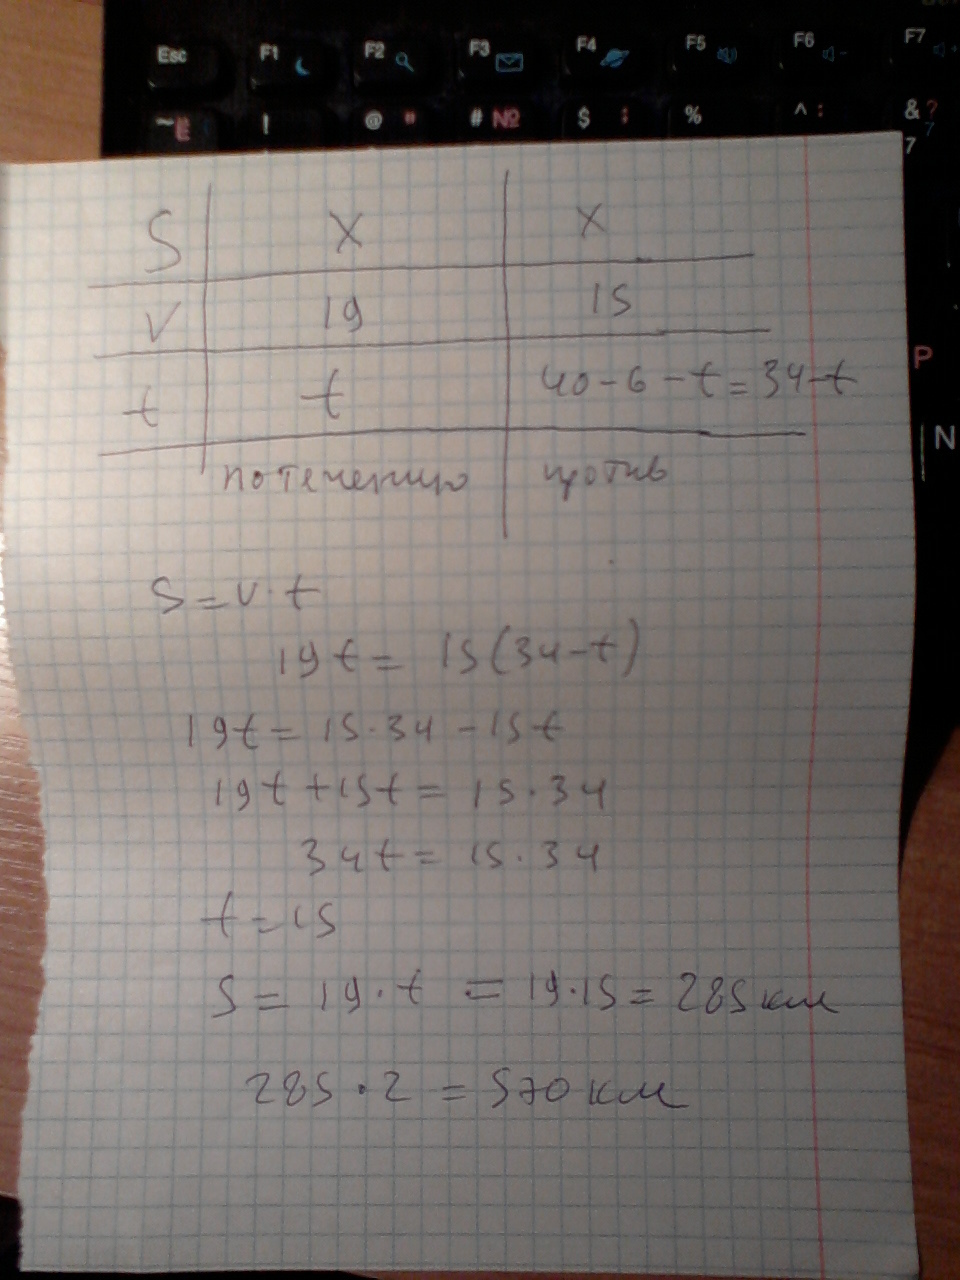 Esc F1 F2 F3 F4 F5 F6 F7
~ Ё ! @ " # № $ ; % ^ : & ?
7 7
S X X
V 19 15
t t 40-6-t=34-t
по течению против
P
N
S=v·t
19t= 15(34-t)
19t= 15·34 -15t
19t+15t= 15·34
34t= 15·34
t=15
S= 19·t = 19·15= 285 км
285·2 = 570 км